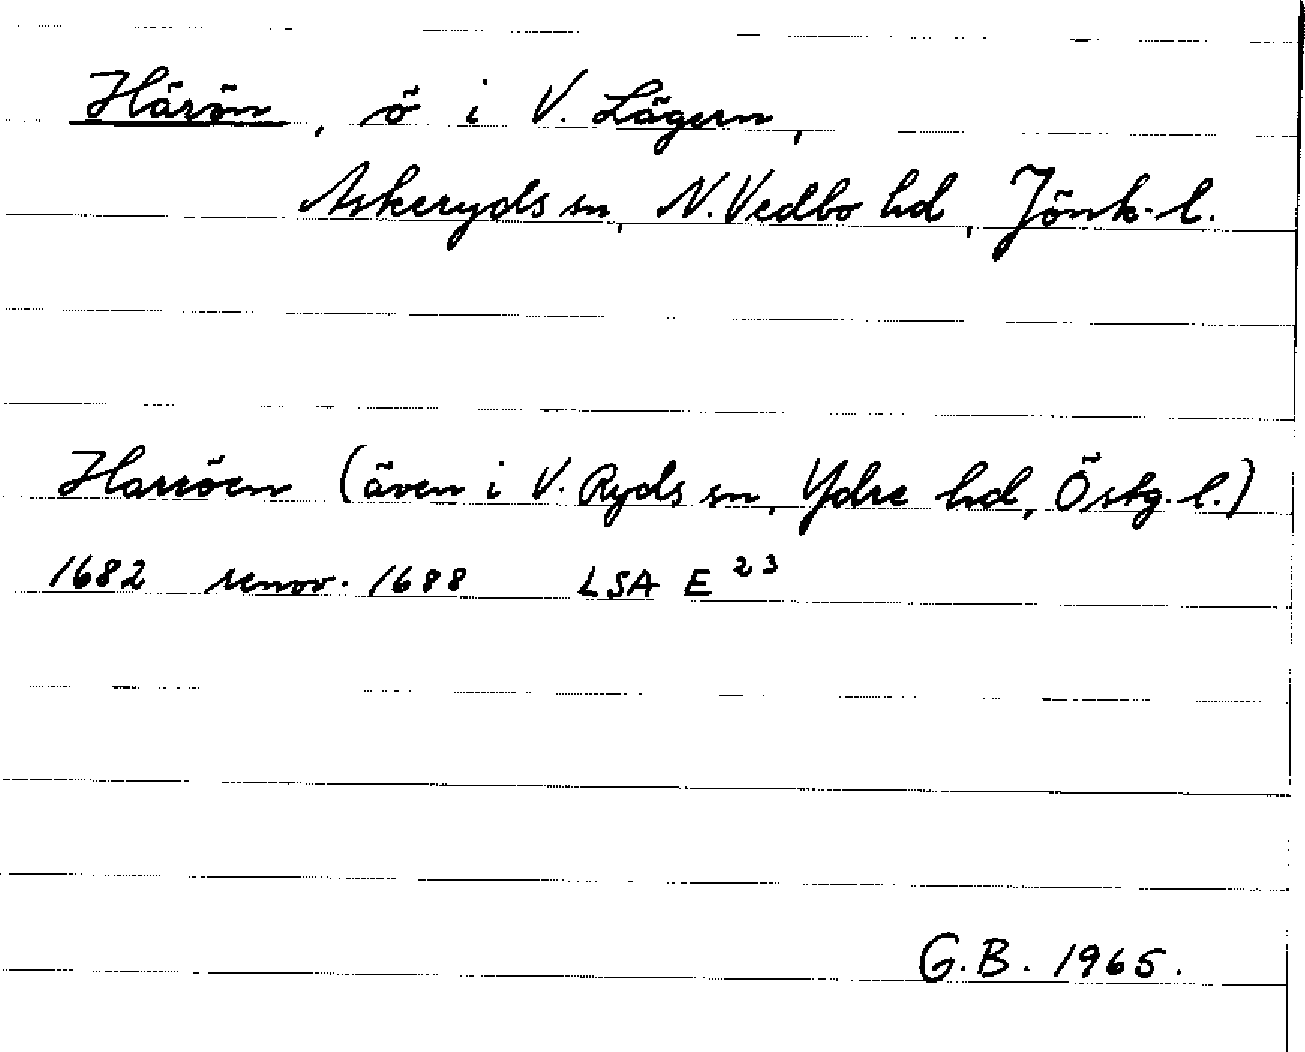 Härön, ö i V. Lägern,
Askeryds sn, N. Vedbo hd, Jönk. l.
Harröen (även i V. Ryds sn, Ydre hd, Östg. l.)
1682 renov. 1688 LSA E 23
G.B. 1965.